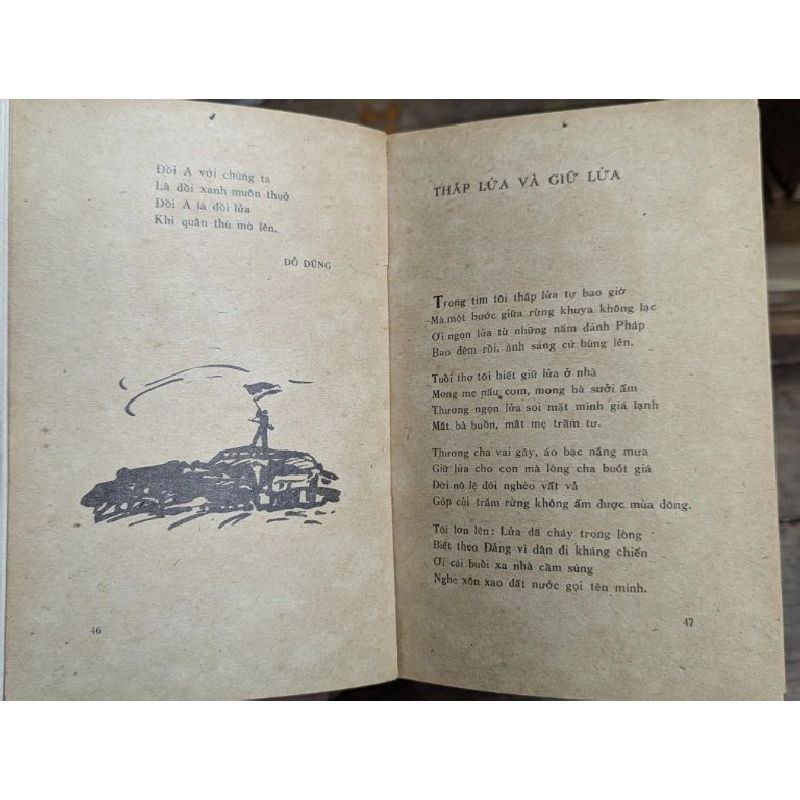 Đồi A với chúng ta
Là đồi xanh muôn thuở
Đồi A là đồi lửa
Khi quân thù mò lên.
ĐỖ DŨNG
46
THẮP LỬA VÀ GIỮ LỬA
Trong tim tôi thắp lửa tự bao giờ
Mà một bước giữa rừng khuya không lạc
Ơi ngọn lửa từ những năm đánh Pháp
Bao đêm rồi, ánh sáng cứ bùng lên.
Tuổi thơ tôi biết giữ lửa ở nhà
Mong mẹ nấu cơm, mong bà sưởi ấm
Thương ngọn lửa soi mặt mình giá lạnh
Mắt bà buồn, mắt mẹ trầm tư.
Thương cha vai gầy, áo bạc nắng mưa
Giữ lửa cho con mà lòng cha buốt giá
Đời nô lệ đói nghèo vất vả
Góp củi trăm rừng không ấm được mùa đông.
Tôi lớn lên: Lửa đã cháy trong lòng
Biết theo Đảng vì dân đi kháng chiến
Ơi cái buổi xa nhà cầm súng
Nghe xôn xao đất nước gọi tên mình.
47